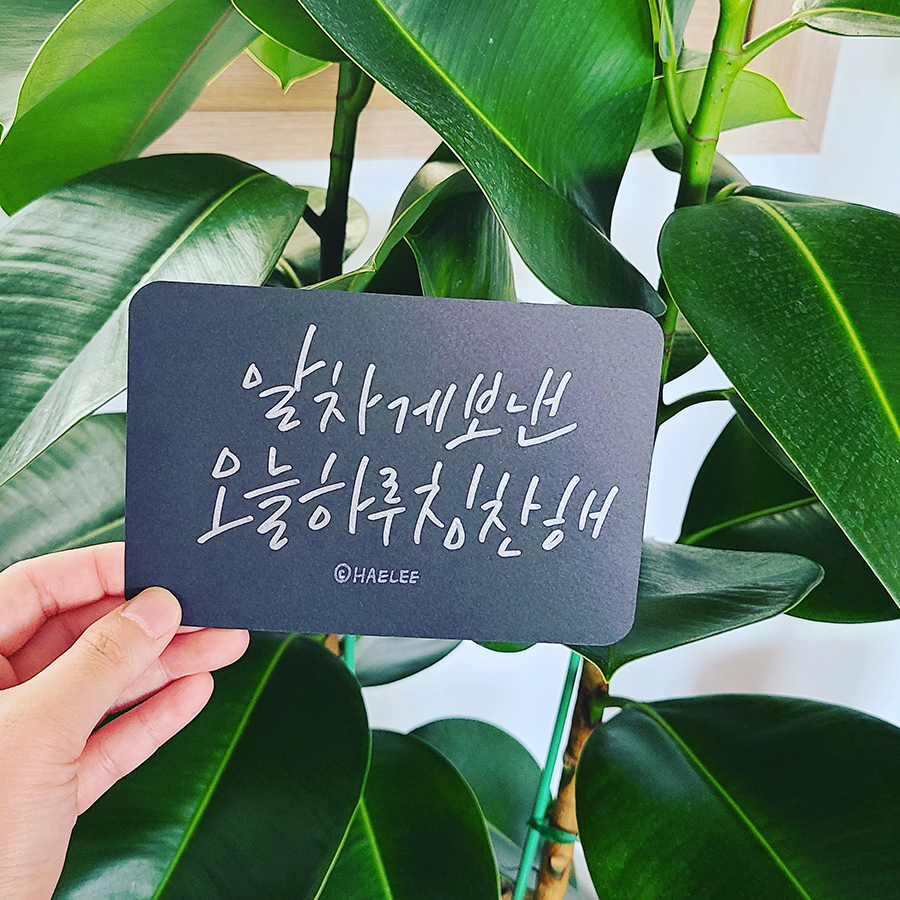 알차게보낸
오늘하루칭찬해
©HAELEE